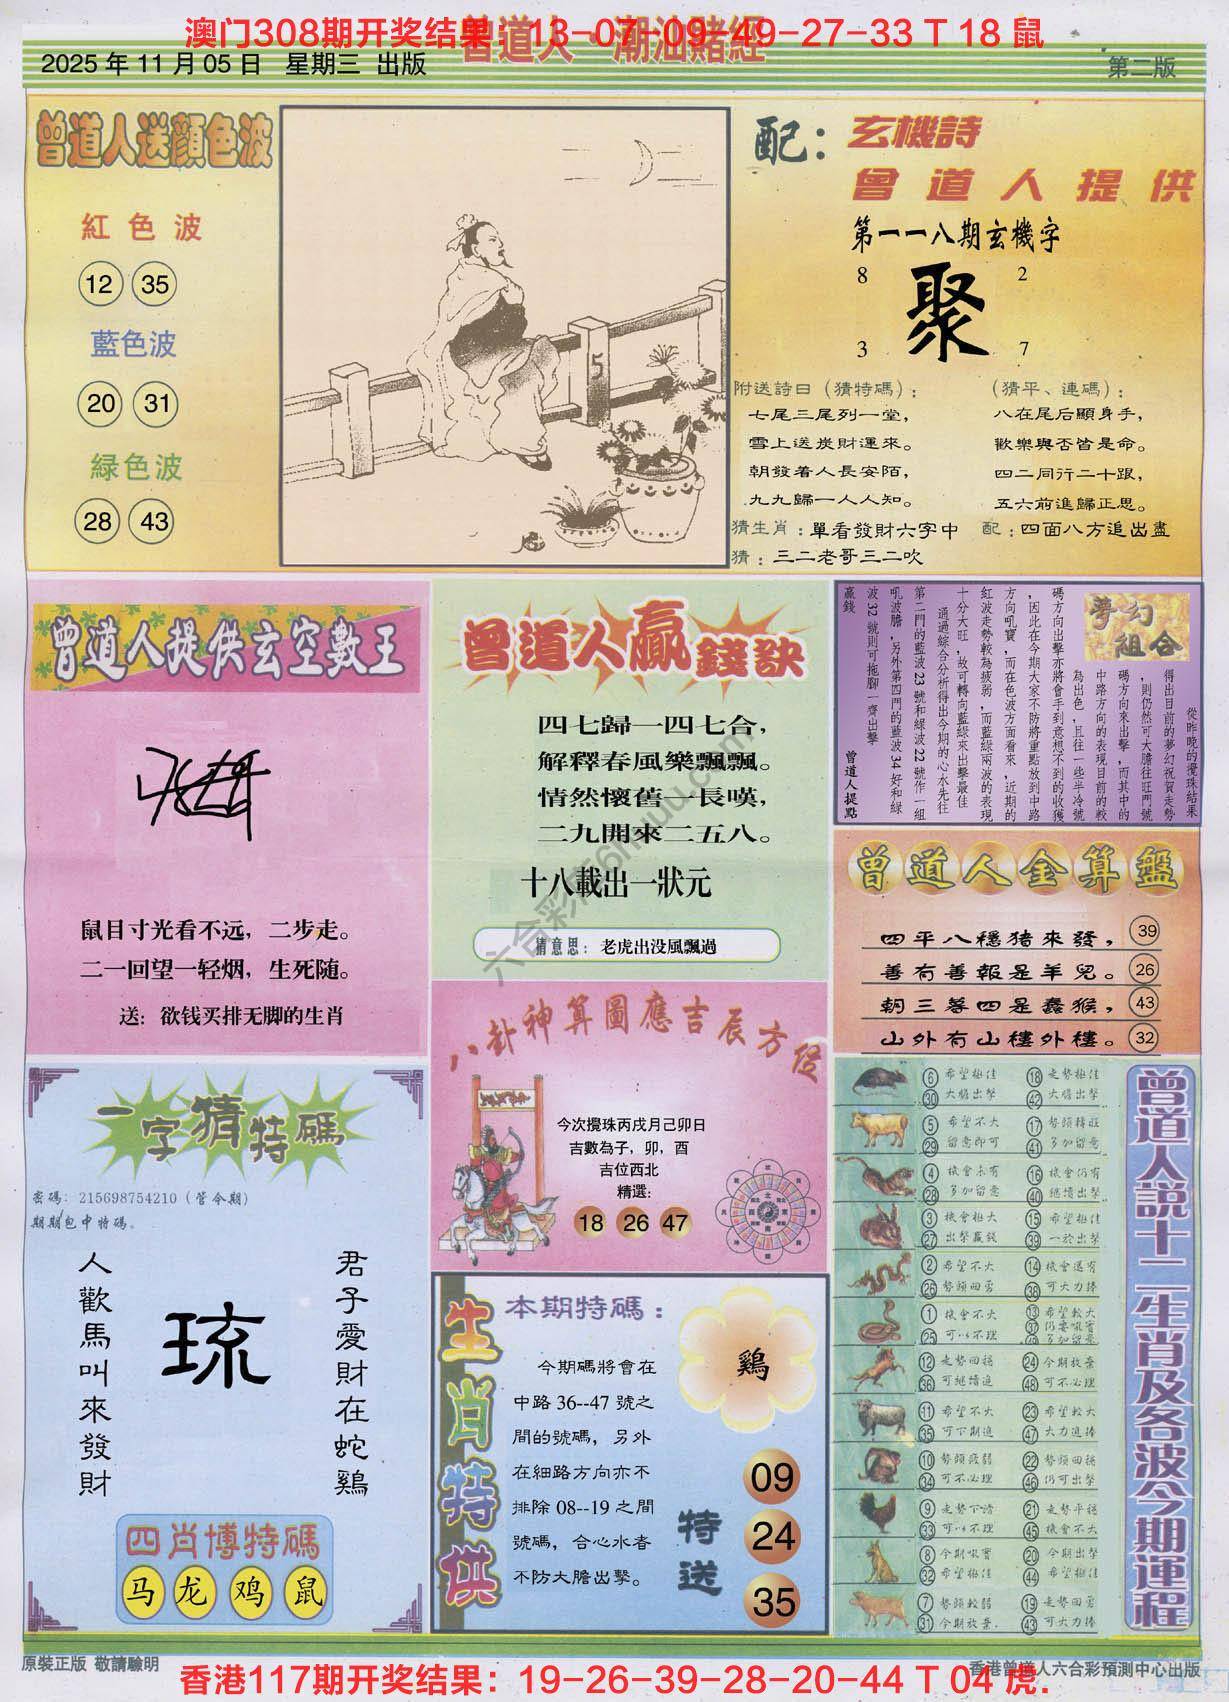 澳门308期开奖结果：13-07-09-49-27-33 T 18 鼠
曾道人·潮汕賭經
2025 年 11 月 05 日 星期三 出版
第二版
曾道人送顔色波
紅色波
12 35
藍色波
20 31
緑色波
28 43
5
配：
玄機詩
曾道人提供
第一一八期玄機字
8 2
聚
3 7
附送詩曰（猜特碼）：
七尾三尾列一堂，
雪上送炭財運來。
朝發着人長安陌，
九九歸一人人知。
（猜平、連碼）：
八在尾后顯身手，
歡樂與否皆是命。
四二同行二十跟，
五六前進歸正思。
猜生肖：單看發財六字中
配：四面八方追出盡
猜：三二老哥三二吹
曾道人提供玄空數王
鼠目寸光看不远，二步走。
二一回望一轻烟，生死随。
送：欲钱买排无脚的生肖
曾道人贏錢訣
四七歸一四七合，
解釋春風樂飄飄。
情然懷舊一長嘆，
二九開來二五八。
十八載出一狀元
猜意思：老虎出没風飄過
夢幻組合
從昨晚的攪珠結果
得出目前的夢幻祝賀走勢
，則仍然可大膽往旺門號
碼方向來出擊，而其中的
中路方向的表現目前的較
為出色，且往一些半冷號
碼方向出擊亦將會手到意想不到的收獲
，因此在今期大家不防將重點放到中路
方向吼寶，而在色波方面看來，近期的
紅波走勢較為疲弱，而藍綠兩波的表現
十分大旺，故可轉向藍綠來出擊最佳
通過綜合分析得出今期的心水先往
第二門的藍波23號和綠波22號作一組
吼波膽，另外第四門的藍波34好和綠
波32號則可拖腳一齊出擊
贏錢
曾道人提點
曾道人金算盤
四平八穩猪來發， 39
善有善報是羊兒。 26
朝三暮四是蠢猴， 43
山外有山樓外樓。 32
八卦神算圖應吉辰方位
今次攪珠丙戌月己卯日
吉數為子，卯，酉
吉位西北
精選：
18 26 47
一字猜特碼
密碼：215698754210（管令期）
期期包中特碼。
君子愛財在蛇鷄
琉
人歡馬叫來發財
四肖博特碼
马 龙 鸡 鼠
生肖特供
本期特碼：
今期碼將會在
中路 36--47 號之
間的號碼，另外
在細路方向亦不
排除 08--19 之間
號碼，合心水者
不防大膽出擊。
鷄
特送
09
24
35
曾道人説十二生肖及各波今期運程
6 希望極佳 18 走勢極佳
30 大膽出擊 42 大膽出擊
5 希望不大 17 勢頭轉旺
29 留意即可 41 多加留意
4 機會未有 16 機會仍有
28 多加留意 40 繼續出擊
3 機會極大 15 希望極佳
27 出擊贏錢 39 一於出擊
2 希望不大 14 機會還有
26 勢頭回勇 38 可大力捧
1 機會不大 13 希望較大
25 可以不理 37 仍要吼實
49 多加留意
12 走勢回穩 24 今期放棄
36 可繼續追 48 可不必理
11 希望不大 23 希望較大
35 可下期追 47 大力追捧
10 勢頭疲弱 22 勢頭回穩
34 可不必理 46 仍可出擊
9 走勢下滑 21 走勢平穩
33 可以不理 45 機會不大
8 今期吼實 20 今期出擊
32 希望極佳 44 希望極佳
7 勢頭較弱 19 走勢回勇
31 今期放棄. 43 可大力捧
六合彩库6huuu.com
原裝正版 敬請驗明
香港117期开奖结果：19-26-39-28-20-44 T 04 虎.
香港曾道人六合彩預測中心出版